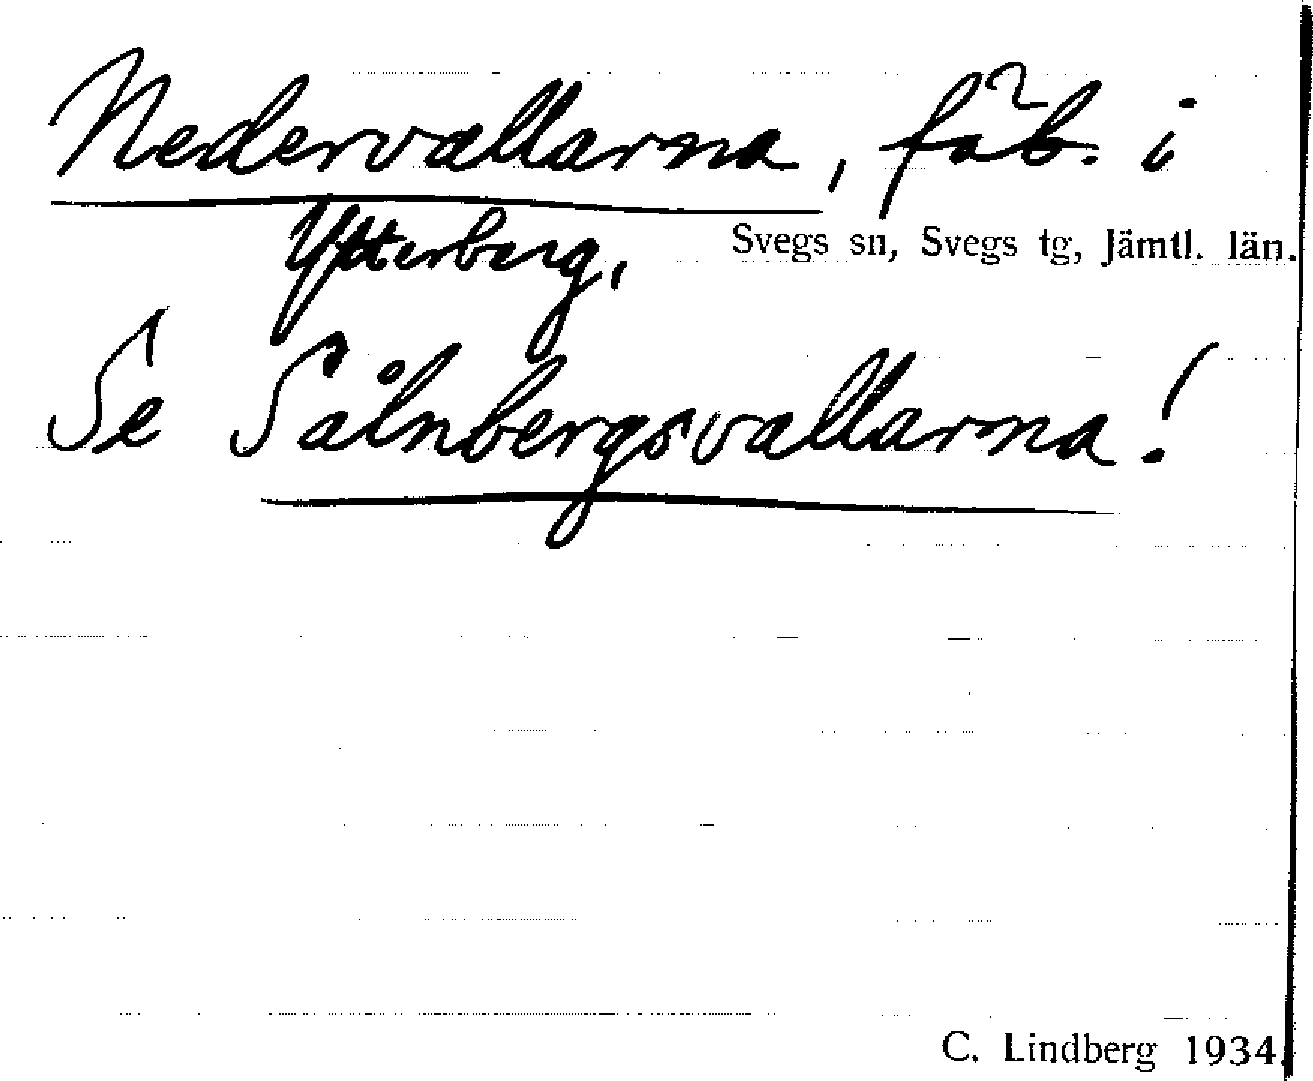 Nedervallarna, fäb. i
Ytterberg, Svegs sn, Svegs tg, Jämtl. län.
Se Sålnbergsvallarna!
C. Lindberg 1934.